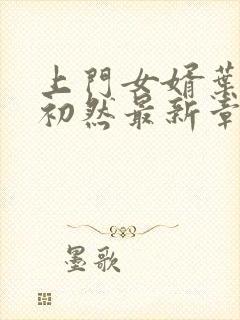 上門女婿葉
初然最新章
墨歌